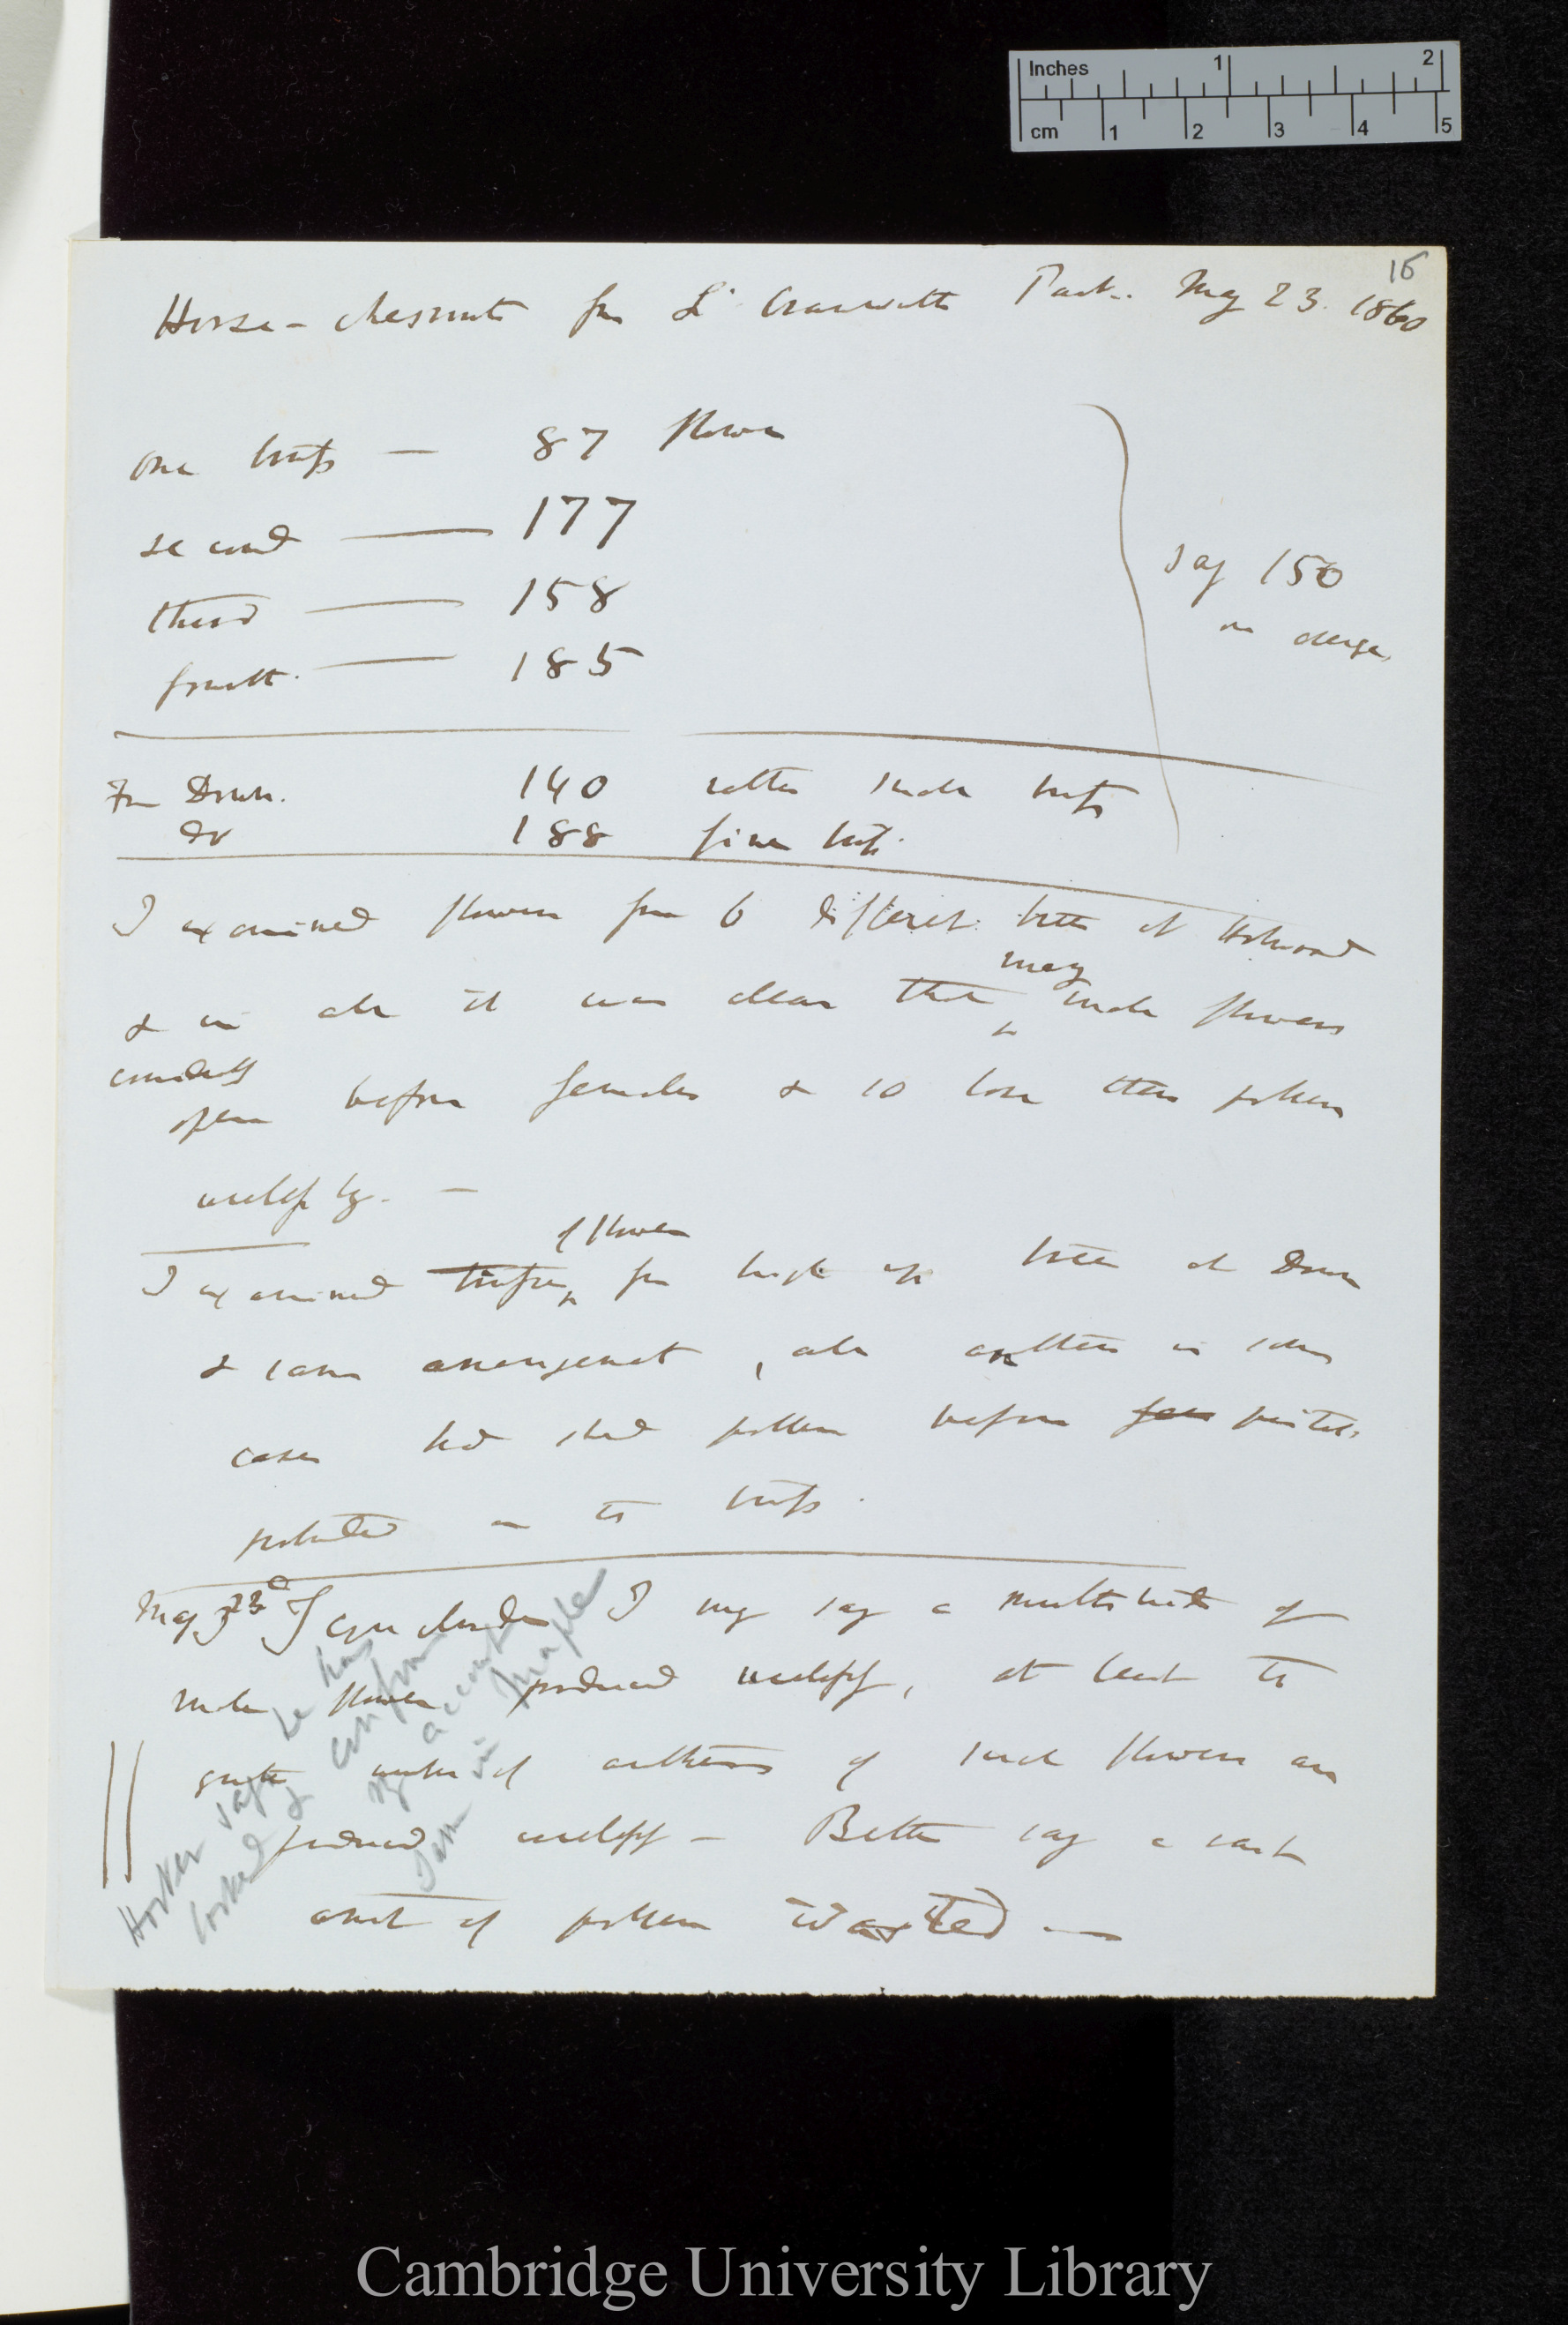 Inches 1 2
cm 1 2 3 4 5
16
Horse-chesnuts from Ld Cranworth Park. May 23. 1860
One truss — 87 flowers
second — 177
third — 158
fourth. — 185
say 150
on average.
From Down. 140 rather small truss
do 188 fine truss.
I examined flowers from 6 different trees at Holwood
& in all it was clear that many male flowers
open before females & so lose their pollen
uselessly. —
I examined trusses of flowers from high up tree at Down
& same arrangement, all anthers in some
cases had shed pollen before fem pistils
protruded on truss.
May 23d I conclude I may say a multitude of
male flowers produced uselessly, at least the
greater number of anthers of such flowers are
produced uselessly — Better say a vast
amount of pollen wasted —
Hooker says he has
looked & confirms
my account
Same in Maple
Cambridge University Library